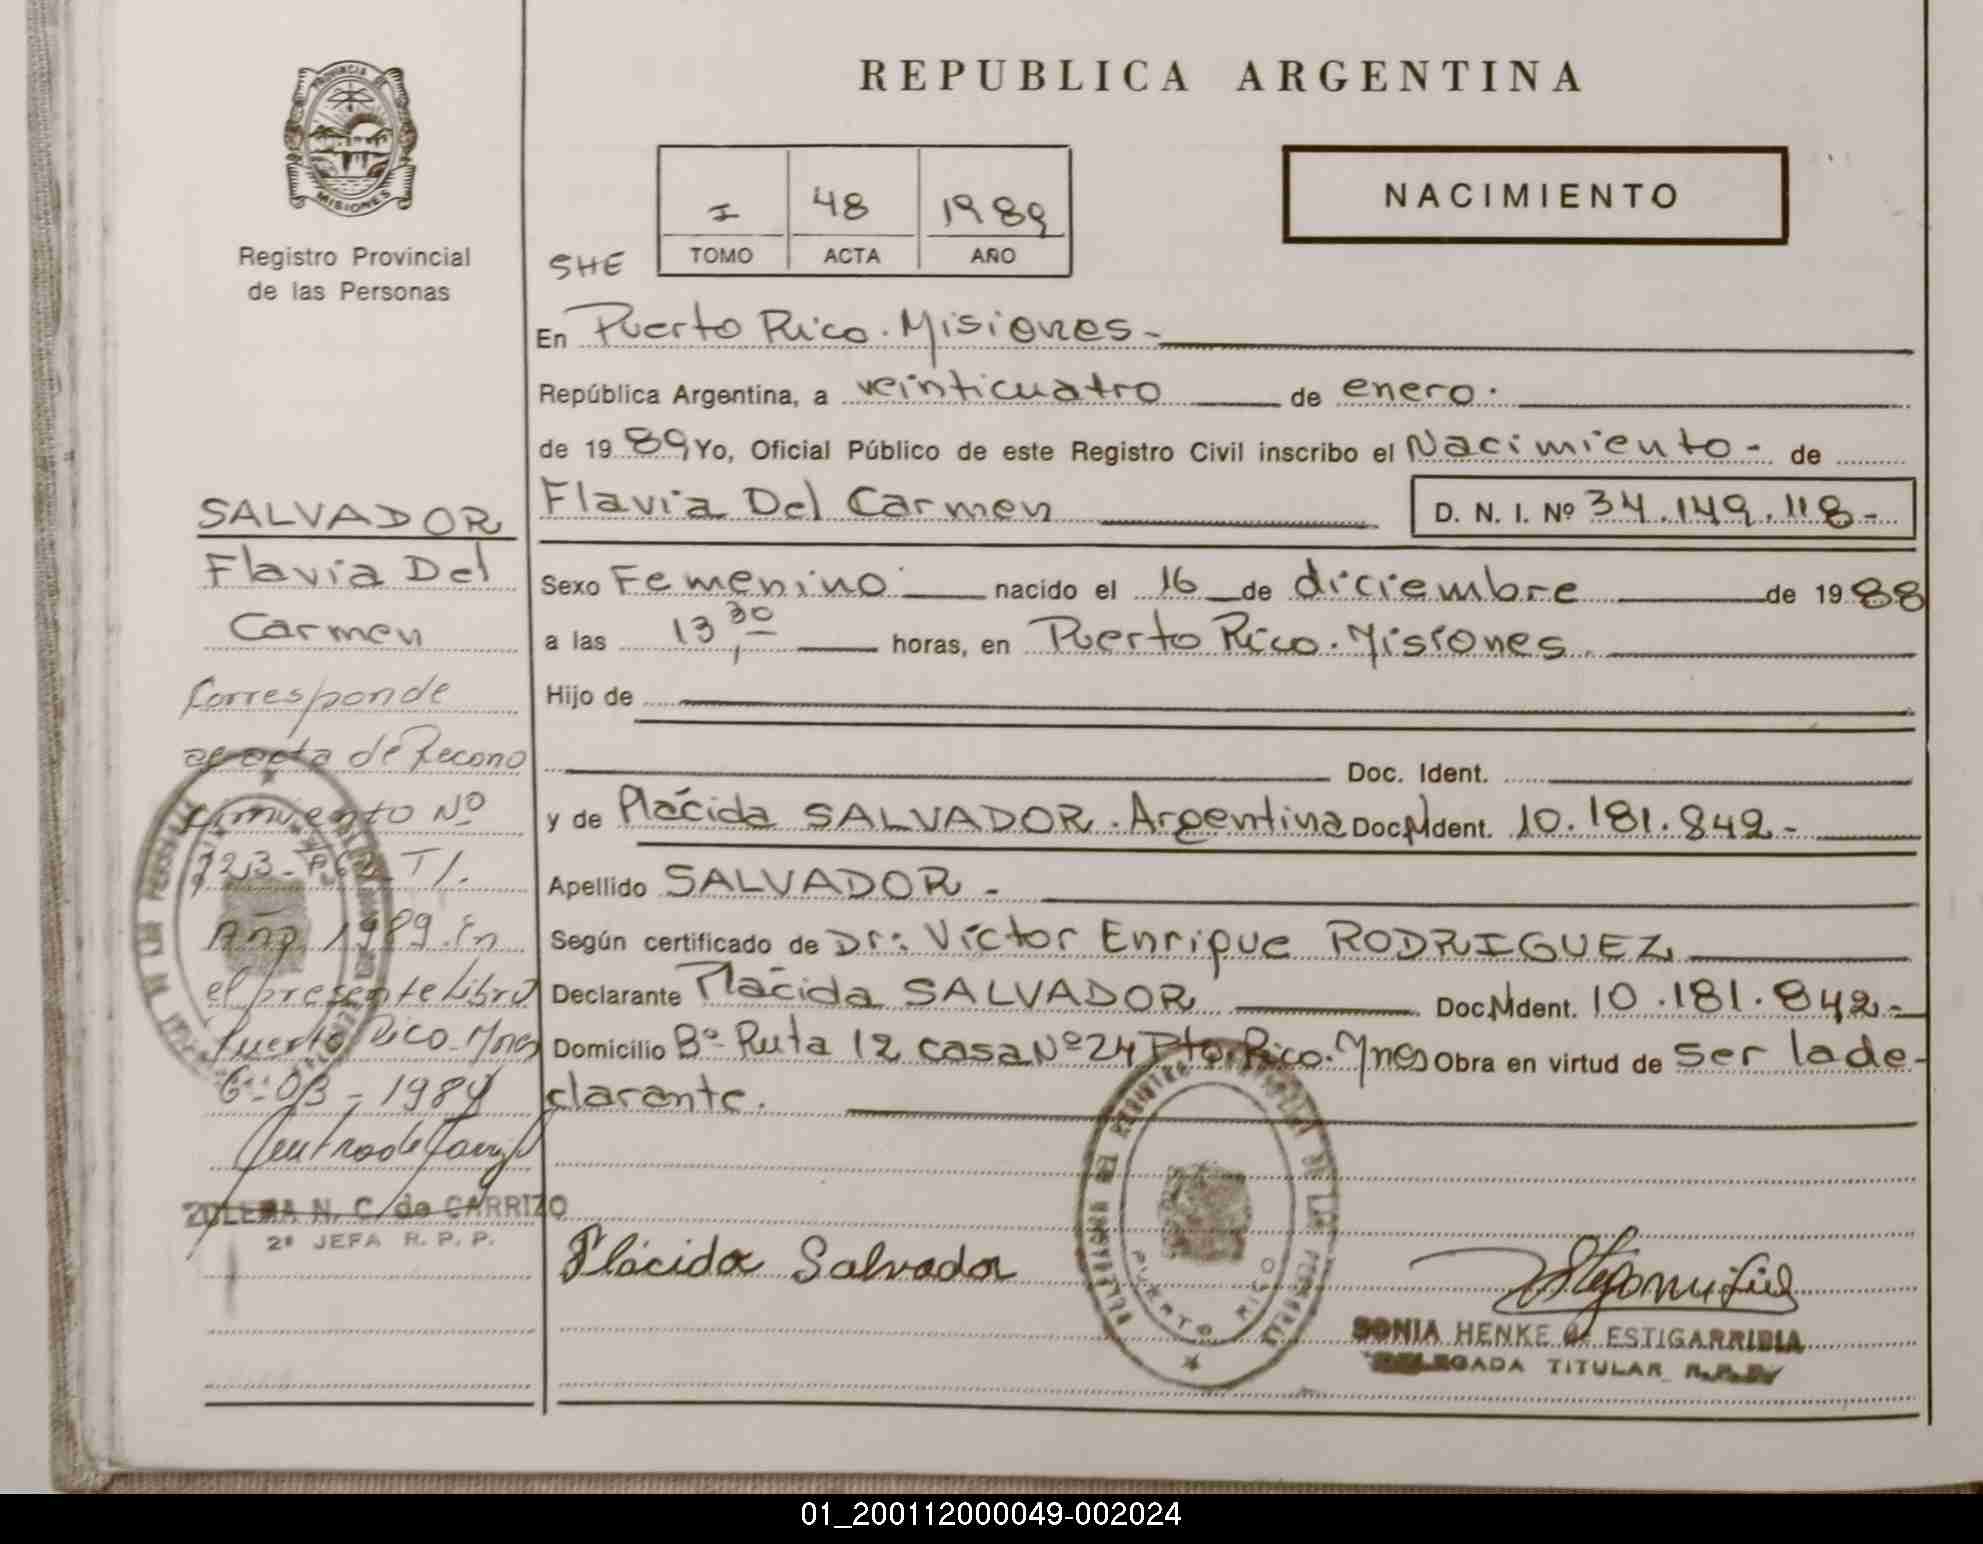 REPUBLICA ARGENTINA
PROVINCIA DE
MISIONES
Registro Provincial
de las Personas
NACIMIENTO
I 48 1989
TOMO ACTA AÑO
SHE
En Puerto Rico. Misiones-
República Argentina, a veinticuatro de enero.
de 1989 Yo, Oficial Público de este Registro Civil inscribo el Nacimiento- de
Flavia Del Carmen D. N. I. Nº 34.149.118-
Sexo Femenino nacido el 16 de diciembre de 1988
a las 13,30 horas, en Puerto Rico. Misiones.
Hijo de
Doc. Ident.
y de Plácida SALVADOR. Argentina Doc.NIdent. 10.181.842-
Apellido SALVADOR-
Según certificado de Dr: Víctor Enrique RODRIGUEZ
Declarante Plácida SALVADOR Doc.NIdent. 10.181.842-
Domicilio Bº Ruta 12 casa Nº 24 Pto. Rico. Mnes Obra en virtud de ser la de-
clarante.
SALVADOR
Flavia Del
Carmen
Corresponde
acta de Recono
cimiento Nº
223- Tl.
Año 1989. En
el presente Libro
Puerto Rico. Mnes
6-03-1989
ZULEMA N. C. de CARRIZO
2ª JEFA R. P. P.
Plácida Salvador
PUERTO RICO
SONIA HENKE de ESTIGARRIBIA
DELEGADA TITULAR R.P.P.
01_200112000049-002024